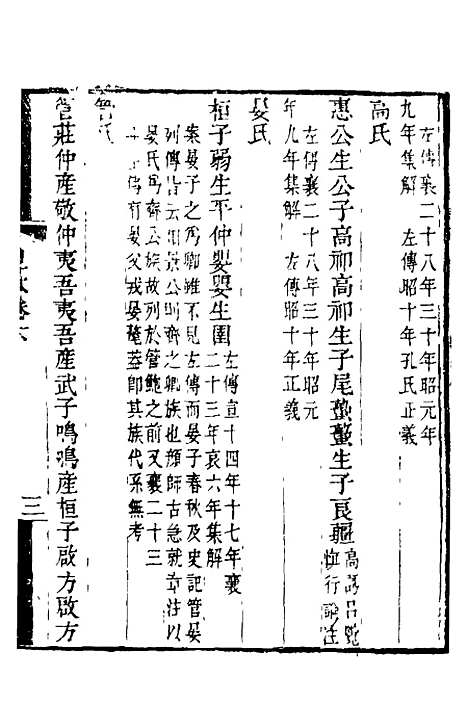 左傳襄二十八年三十年昭元年
九年集解　左傳昭十年孔氏正義
高氏
惠公生公子高祁高祁生子尾蠆蠆生子良彊高誘呂覽
慎行論注
左傳襄二十八年三十年昭元
年九年集解　左傳昭十年正義
晏氏
桓子弱生平仲嬰嬰生圉左傳宣十四年十七年襄
二十三年哀六年集解
案晏子之爲卿雖不見左傳而晏子春秋及史記管晏
列傳皆云相景公則齊之卿族也顏師古急就章注以
晏氏爲齊公族故列於管鮑之前又襄二十三
年傳有晏父戎晏氂蓋卽其族代系無考
管氏
管莊仲產敬仲夷吾夷吾產武子鳴鳴產桓子啟方啟方
卷六
三